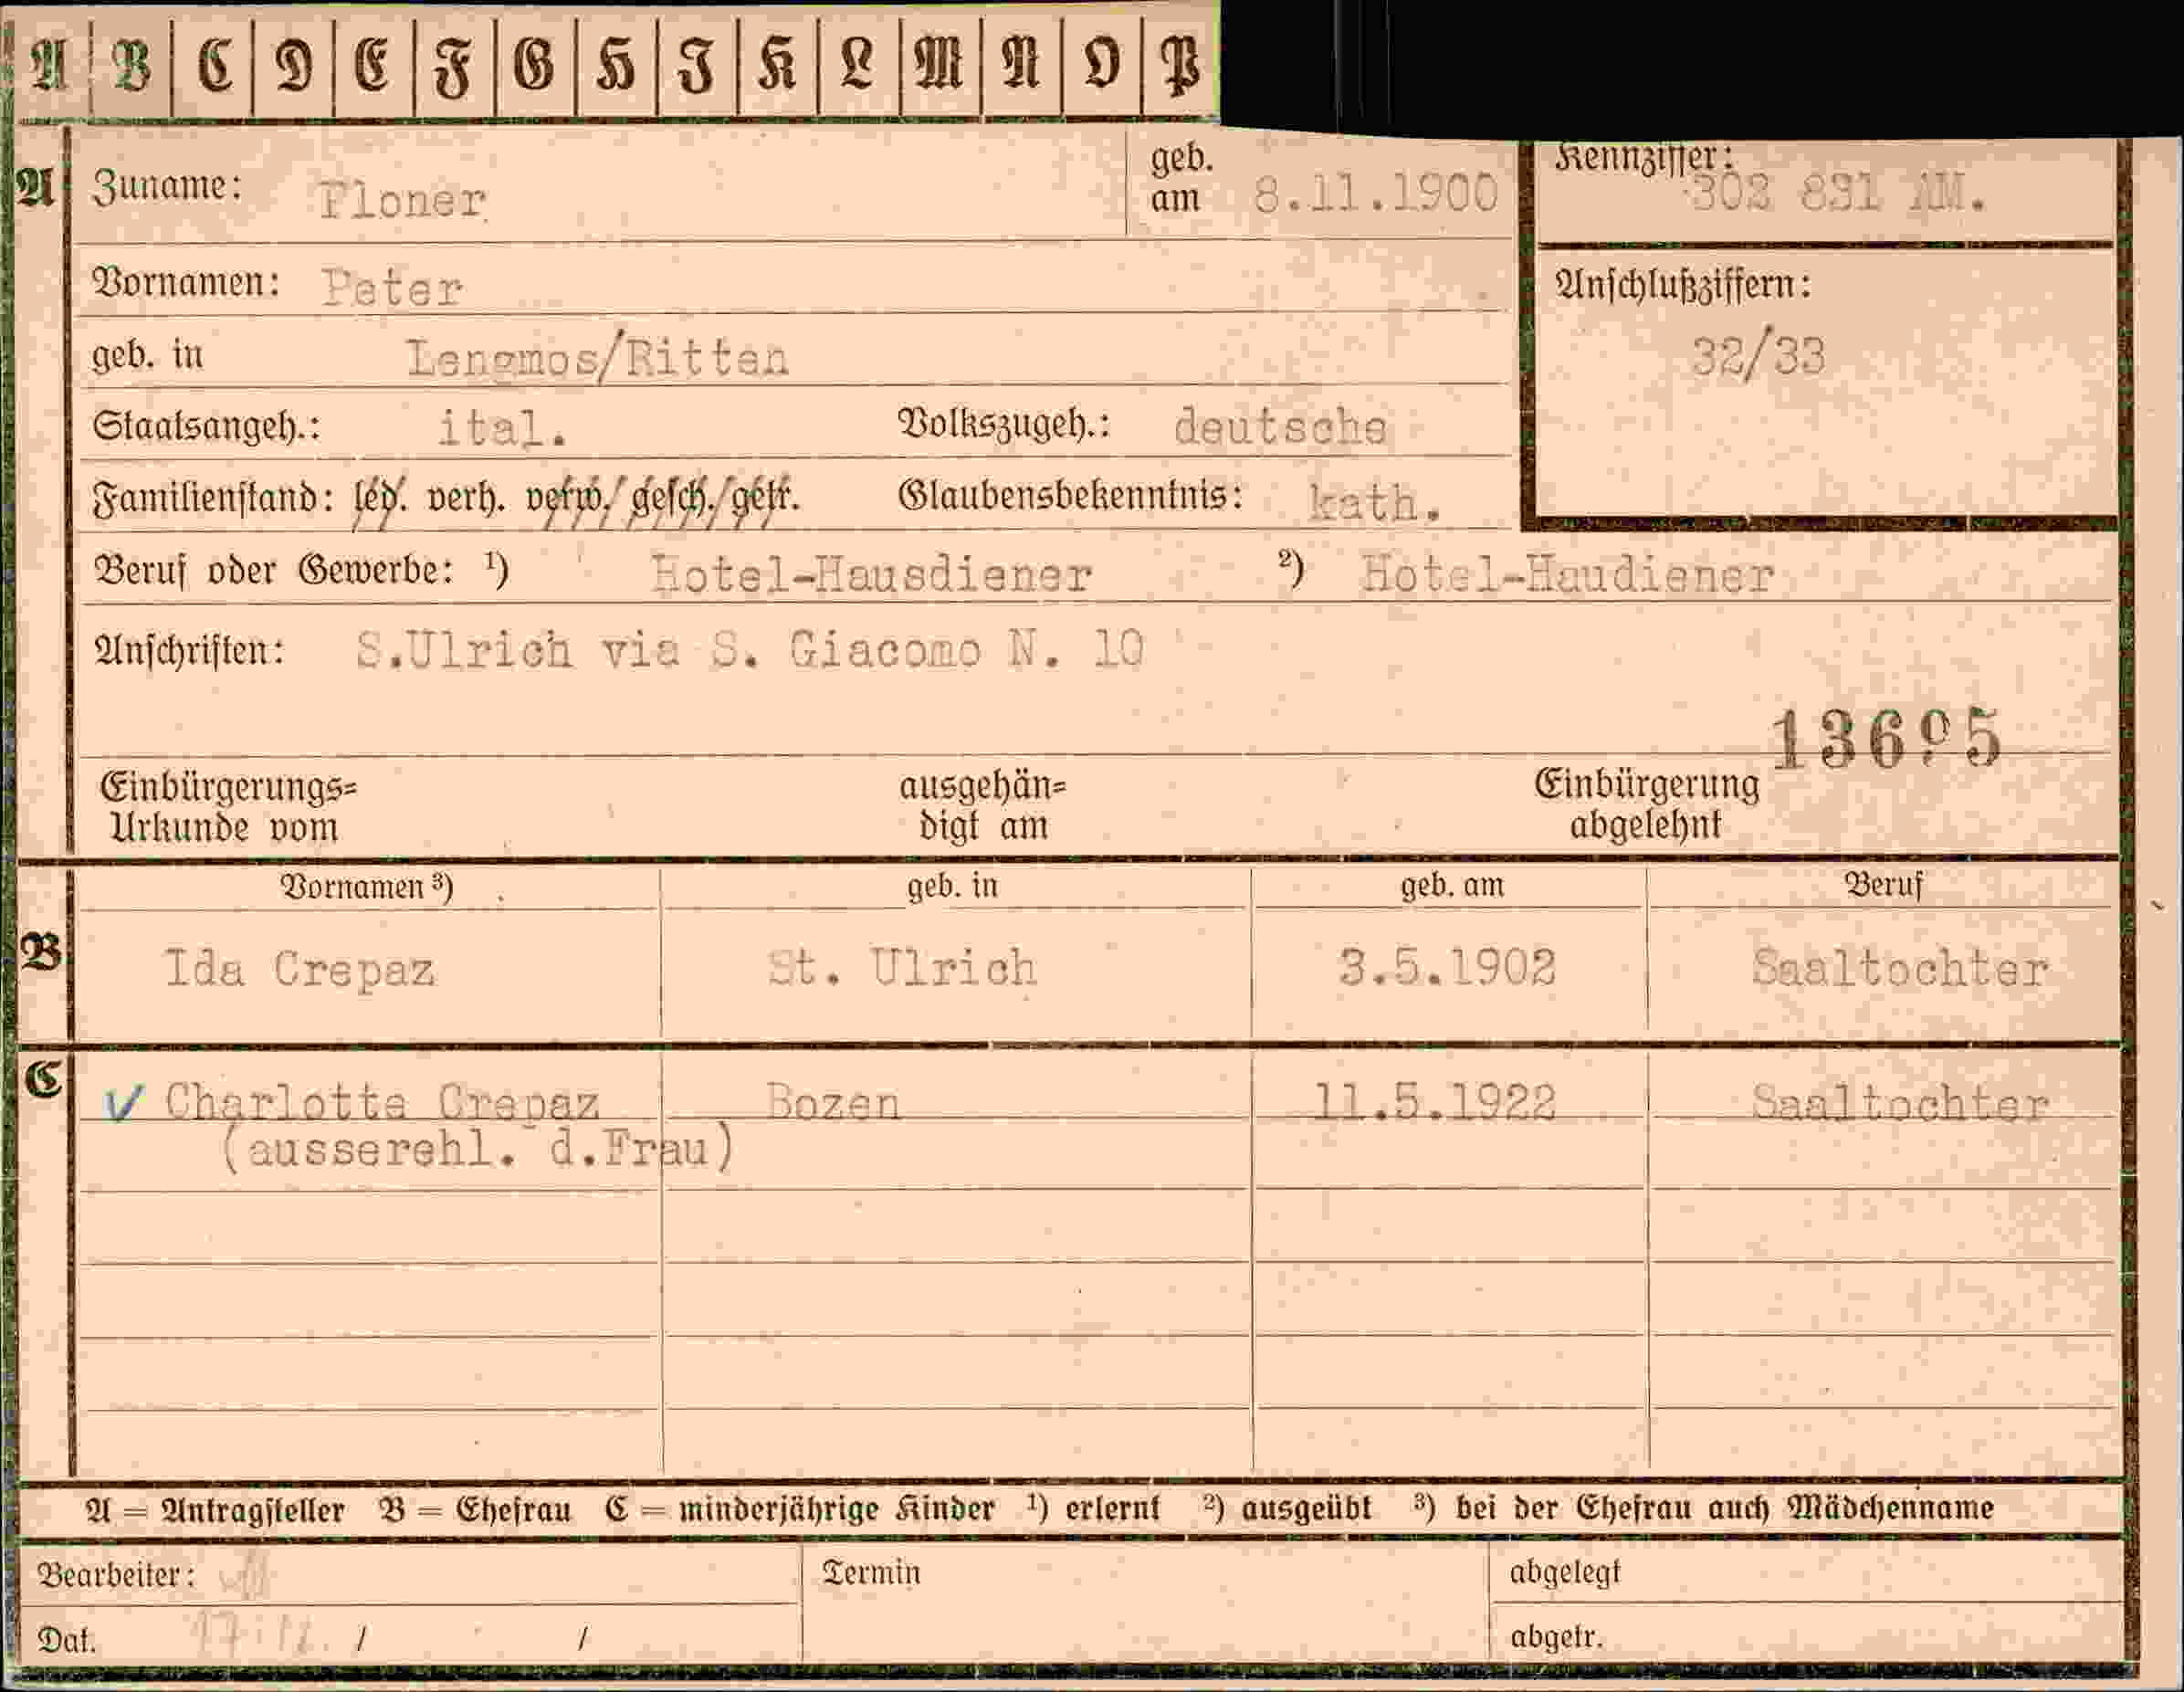 A B C D E F G H I K L M N O P
A Zuname: Ploner geb. am 8.11.1900 Kennziffer: 302 831 AM.
Vornamen: Peter Anschlußziffern:
geb. in Lengmos/Ritten 32/33
Staatsangeh.: ital. Volkszugeh.: deutsche
Familienstand: led. verh. verw. gesch. getr. Glaubensbekenntnis: kath.
Beruf oder Gewerbe: ¹) Hotel-Hausdiener ²) Hotel-Haudiener
Anschriften: S.Ulrich via S. Giacomo N. 10
13695
Einbürgerungs= ausgehän= Einbürgerung
Urkunde vom digt am abgelehnt
Vornamen ³) geb. in geb. am Beruf
B Ida Crepaz St. Ulrich 3.5.1902 Saaltochter
C V Charlotte Crepaz Bozen 11.5.1922 Saaltochter
(ausserehl. d.Frau)
A = Antragsteller B = Ehefrau C = minderjährige Kinder ¹) erlernt ²) ausgeübt ³) bei der Ehefrau auch Mädchenname
Bearbeiter: Termin abgelegt
Dat. / / abgetr.